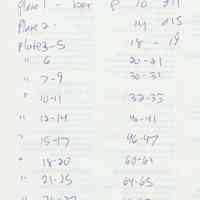 Plate 1 - p 10 211
Plate 2 - 14 215
Plate 3-5 18 - 19
" 6 20-21
" 7-9 30-31
" 10-11 32-33
" 12-14 40-41
" 15-17 46-47
" 18-20 60-61
" 21-25 64-65